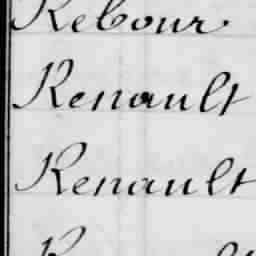 Rebour
Renault
Renault